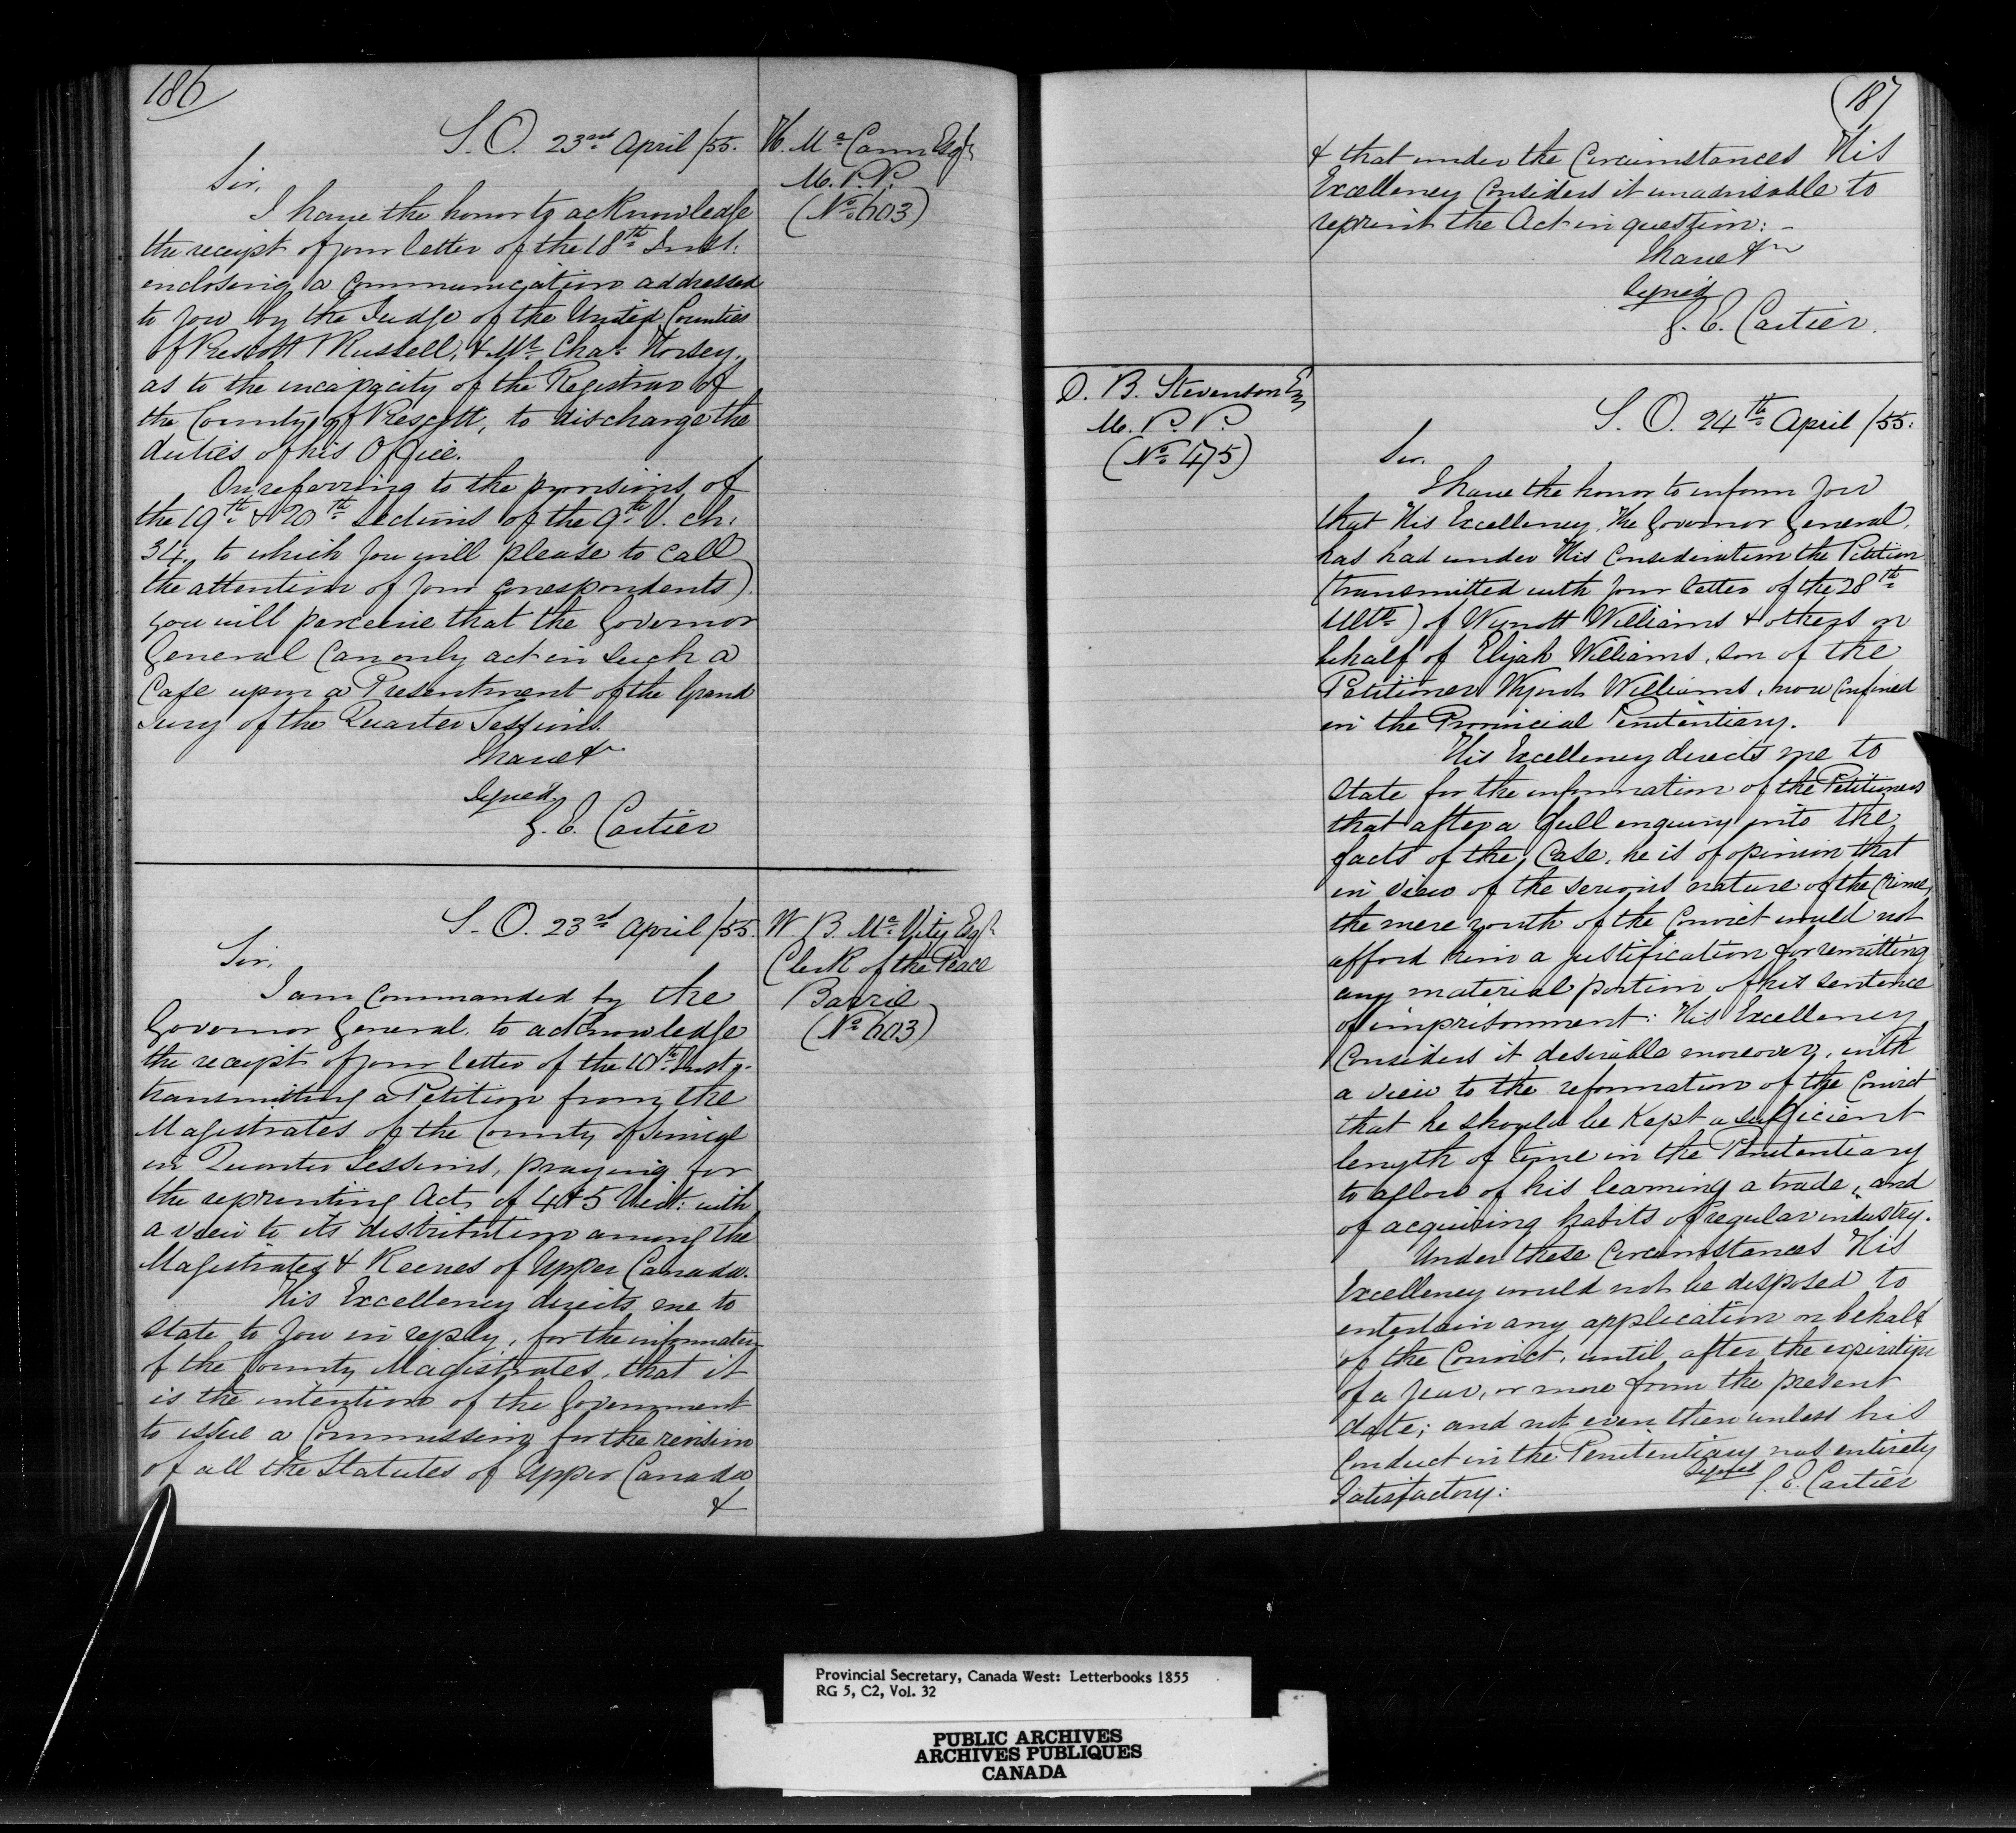 186
S.O. 23rd April /55.
H. McCann Esqr
M.P.P.
(No 603)
Sir,
I have the honor to acknowledge
the receipt of your letter of the 18th Inst.
enclosing a communication addressed
to you by the Judge of the United Counties
of Prescott & Russell, & Mr. Chas. Hersey,
as to the incapacity of the Registrar of
the County of Prescott, to discharge the
duties of his Office.
On referring to the provisions of
the 19th & 20th Sections of the 9th V. ch.
34, to which you will please to call
the attention of your correspondents)
you will perceive that the Governor
General can only act in such a
Case upon a Presentment of the Grand
Jury of the Quarter Sessions.
I have &c
Signed
G. E. Cartier
S.O. 23rd April /55.
W. B. McVity Esqr
Clerk of the Peace
Barrie
(No 603)
Sir,
I am commanded by the
Governor General, to acknowledge
the receipt of your letter of the 10th Inst,
transmitting a Petition from the
Magistrates of the County of Simcoe
in Quarter Sessions, praying for
the reprinting Act of 4 & 5 Vict: with
a view to its distribution among the
Magistrates & Reeves of Upper Canada.
His Excellency directs me to
state to you in reply, for the information
of the County Magistrates, that it
is the intention of the Government
to issue a Commission for the revision
of all the Statutes of Upper Canada
&
187
& that under the Circumstances His
Excellency Considers it unadvisable to
reprint the Act in question: -
I have &c
Signed
G. E. Cartier.
D. B. Stevenson Esq
M.P.P.
(No 475)
S.O. 24th April /55.
Sir.
I have the honor to inform you
that His Excellency, the Governor General,
has had under His Consideration the Petition
(transmitted with your letter of the 28th
Ulto) of Wynott Williams & others on
behalf of Elijah Williams, son of the
Petitioner Wynot Williams, now Confined
in the Provincial Penitentiary.
His Excellency directs me to
state for the information of the Petitioners
that after a full enquiry into the
facts of the Case, he is of opinion that
in view of the serious nature of the Crime,
the mere youth of the Convict would not
afford him a justification for remitting
any material portion of his sentence
of imprisonment: His Excellency
Considers it desirable moreover, with
a view to the reformation of the Convict
that he should be Kept a sufficient
length of time in the Penitentiary
to allow of his learning a trade, and
of acquiring habits of regular industry.
Under these Circumstances His
Excellency would not be disposed to
entertain any application on behalf
of the Convict, until after the expiration
of a year, or more from the present
date; and not even then unless his
Conduct in the Penitentiary was entirely
Satisfactory:
Signed G. E. Cartier
Provincial Secretary, Canada West: Letterbooks 1855
RG 5, C2, Vol. 32
PUBLIC ARCHIVES
ARCHIVES PUBLIQUES
CANADA